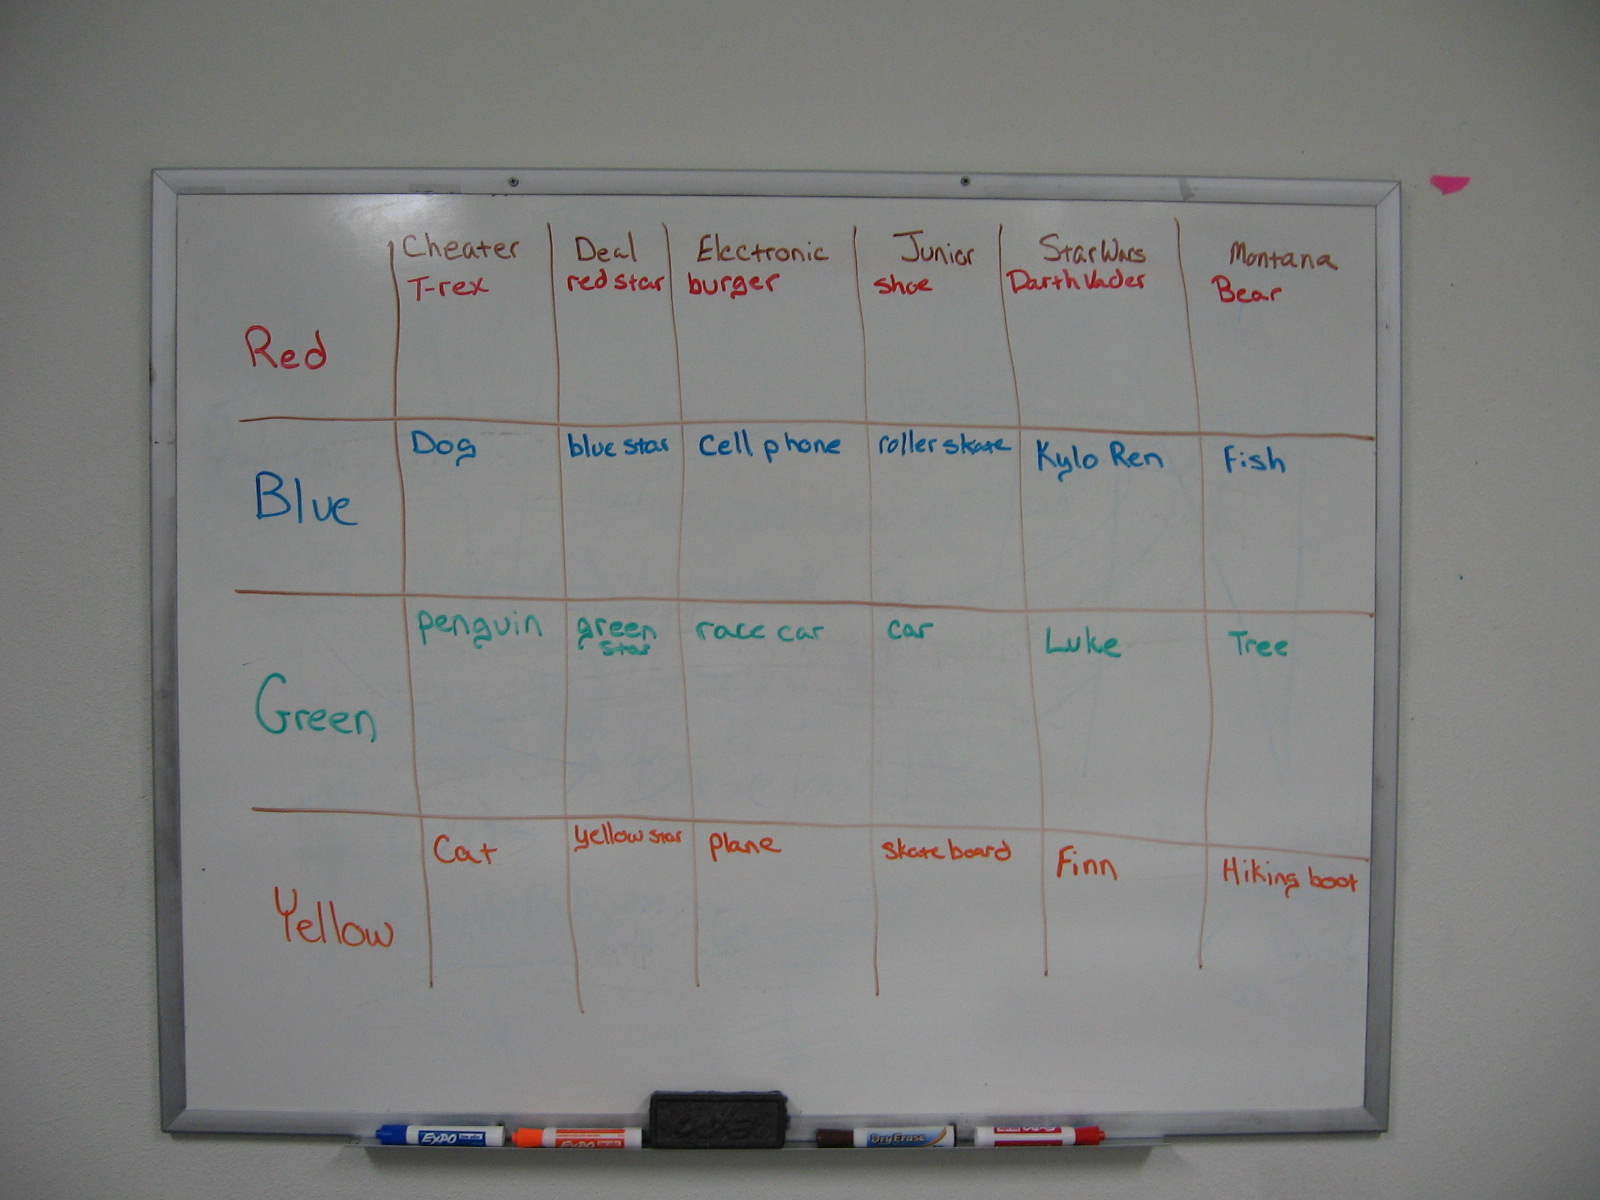 Cheater Deal Electronic Junior Star Wars Montana
T-rex red star burger shoe Darth Vader Bear
Red
Dog blue star Cell phone roller skate Kylo Ren Fish
Blue
penguin green star race car car Luke Tree
Green
Cat yellow star plane skate board Finn Hiking boot
Yellow
EXPO
EXPO
DryErase